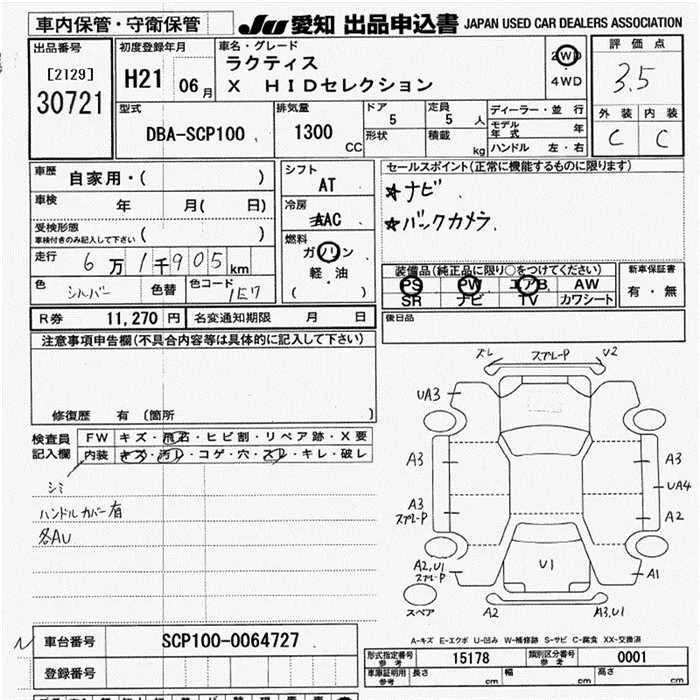 車内保管・守衛保管
JU 愛知 出品申込書 JAPAN USED CAR DEALERS ASSOCIATION
出品番号
[2129]
30721
初度登録年月
H21 06月
車名・グレード
ラクティス
X HIDセレクション
2WD
4WD
評価点
3.5
外装 内装
C C
型式
DBA-SCP100
排気量
1300 CC
ドア 5
定員 5 人
形状
積載 kg
ディーラー・並行
モデル年式 年
ハンドル 左・右
車歴 自家用・( )
車検 年 月( 日)
受検形態
車検付きのみ記入して下さい ( )
走行 6万1千905km
色 シルバー 色替 色コード 1E7
シフト
AT
冷房
AAC
燃料
ガソリン
軽・油
( )
セールスポイント(正常に機能するものに限ります)
★ナビ
★バックカメラ
装備品(純正品に限り○をつけてください)
PS PW エアB AW
SR ナビ TV カワシート
新車保証書
有・無
後日品
R券 11,270 円 名変通知期限 月 日
注意事項申告欄(不具合内容等は具体的に記入して下さい)
修復歴 有 〔箇所 〕
検査員記入欄
FW キズ・飛石・ヒビ割・リペア跡・X要
内装 キズ・汚レ・コゲ・穴・スレ・キレ・破レ
シミ
ハンドルカバー有
各AU
スレ スプレ-P U2
UA3
A3 A3
UA4
A3
スプレ-P
A2
A2,U1
スプレ-P
U1
A1
スペア
A2
A3,U1
A-キズ E-エクボ U-凹み W-補修跡 S-サビ C-腐食 XX-交換済
車台番号 SCP100-0064727
登録番号
形式指定番号
参考 15178
類別区分番号
参考 0001
車庫証明用
参考 長さ cm 幅 cm 高さ cm